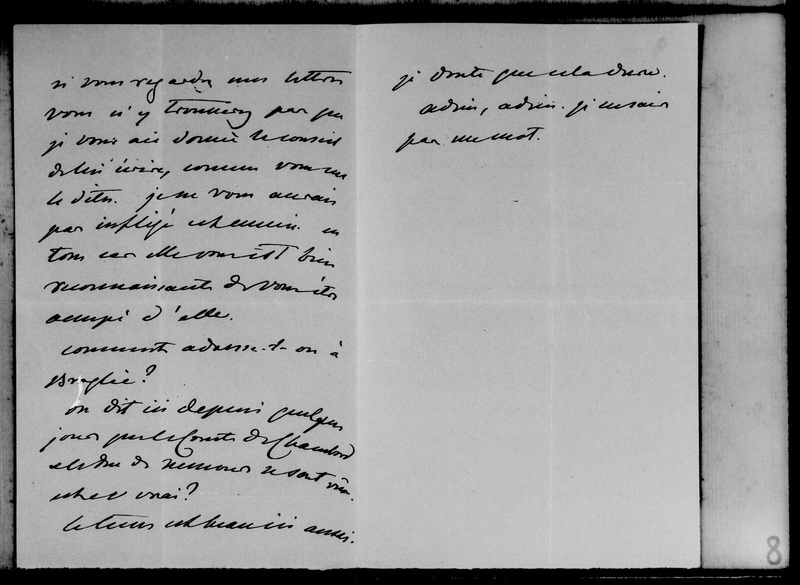 si vous regardez mes lettres
vous n'y trouverez pas que
je vous ai donné le conseil
de lui écrire, comme vous me
le dites. je ne vous aurais
pas infligé cet ennui. en
tous cas elle vous est bien
reconnaissante de vous être
occupé d'elle.
comment adresse-t-on à
Broglie?
on dit ici depuis quelques
jours que le Comte de Chambord
et le duc de Nemours se sont vus.
est ce vrai?
le tems est beau ici aussi.
je doute que cela dure.
adieu, adieu. je ne sais
pas un mot.
8